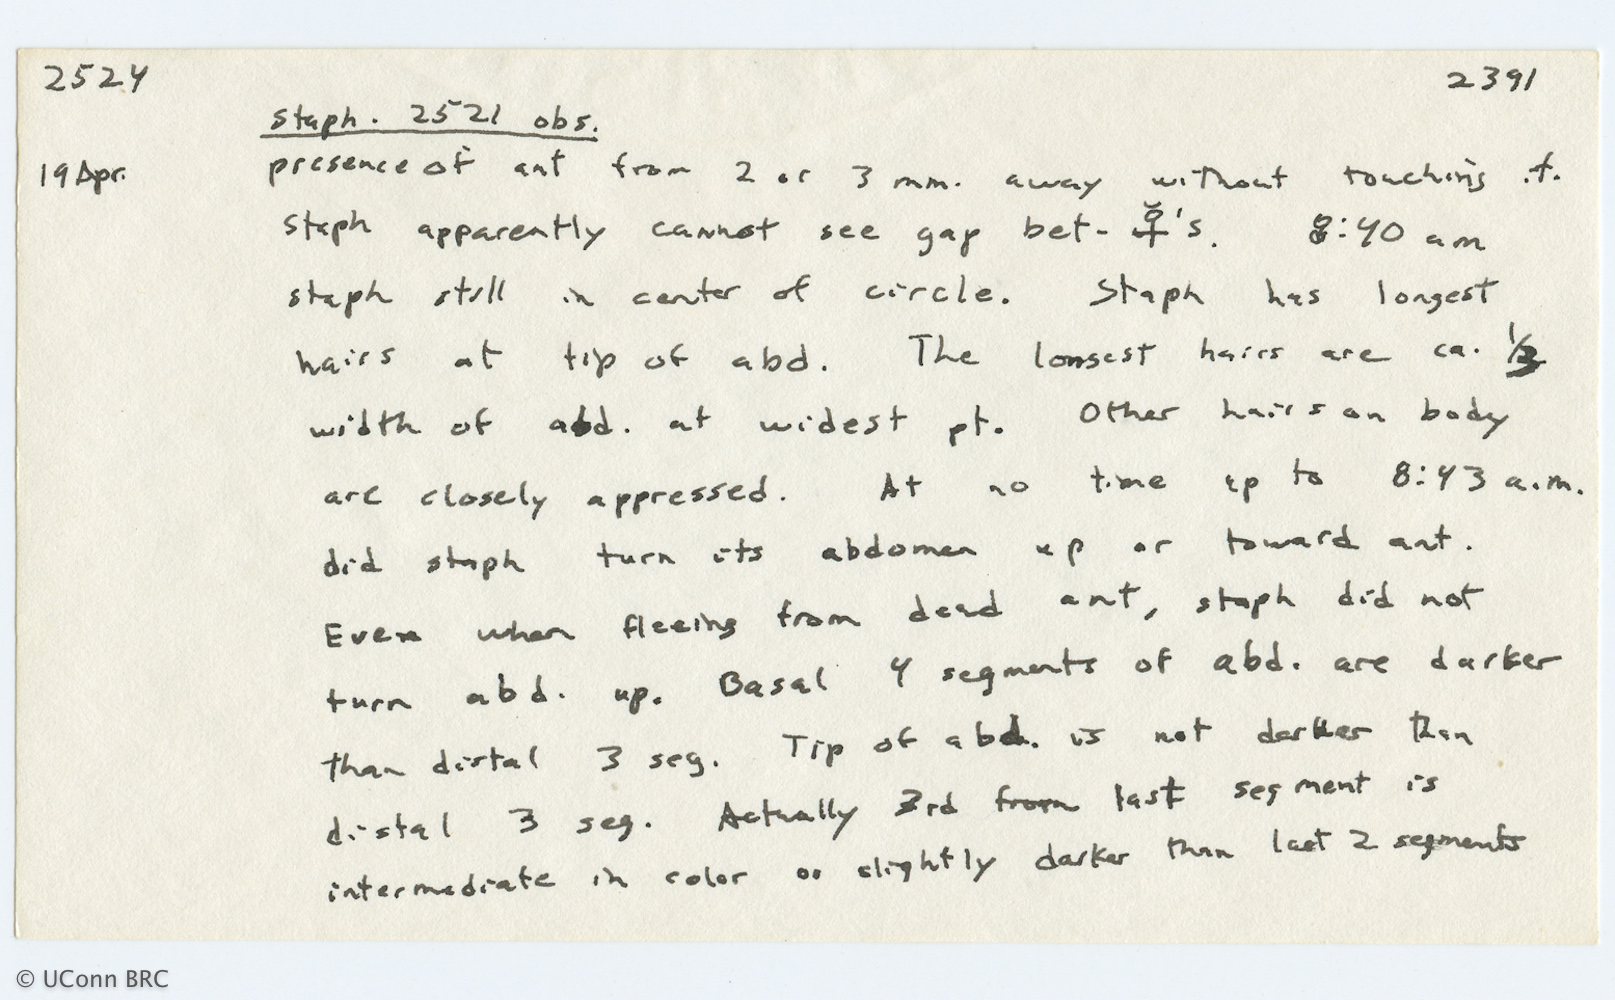 2524
2391
staph. 2521 obs.
19 Apr.
presence of ant from 2 or 3 mm. away without touching it.
staph apparently cannot see gap bet- ☿'s. 8:40 am
staph still in center of circle. Staph has longest
hairs at tip of abd. The longest hairs are ca. 1/3
width of abd. at widest pt. Other hairs on body
are closely appressed. At no time up to 8:43 a.m.
did staph turn its abdomen up or toward ant.
Even when fleeing from dead ant, staph did not
turn abd. up. Basal 4 segments of abd. are darker
than distal 3 seg. Tip of abd. is not darker than
distal 3 seg. Actually 3rd from last segment is
intermediate in color or slightly darker than last 2 segments
© UConn BRC